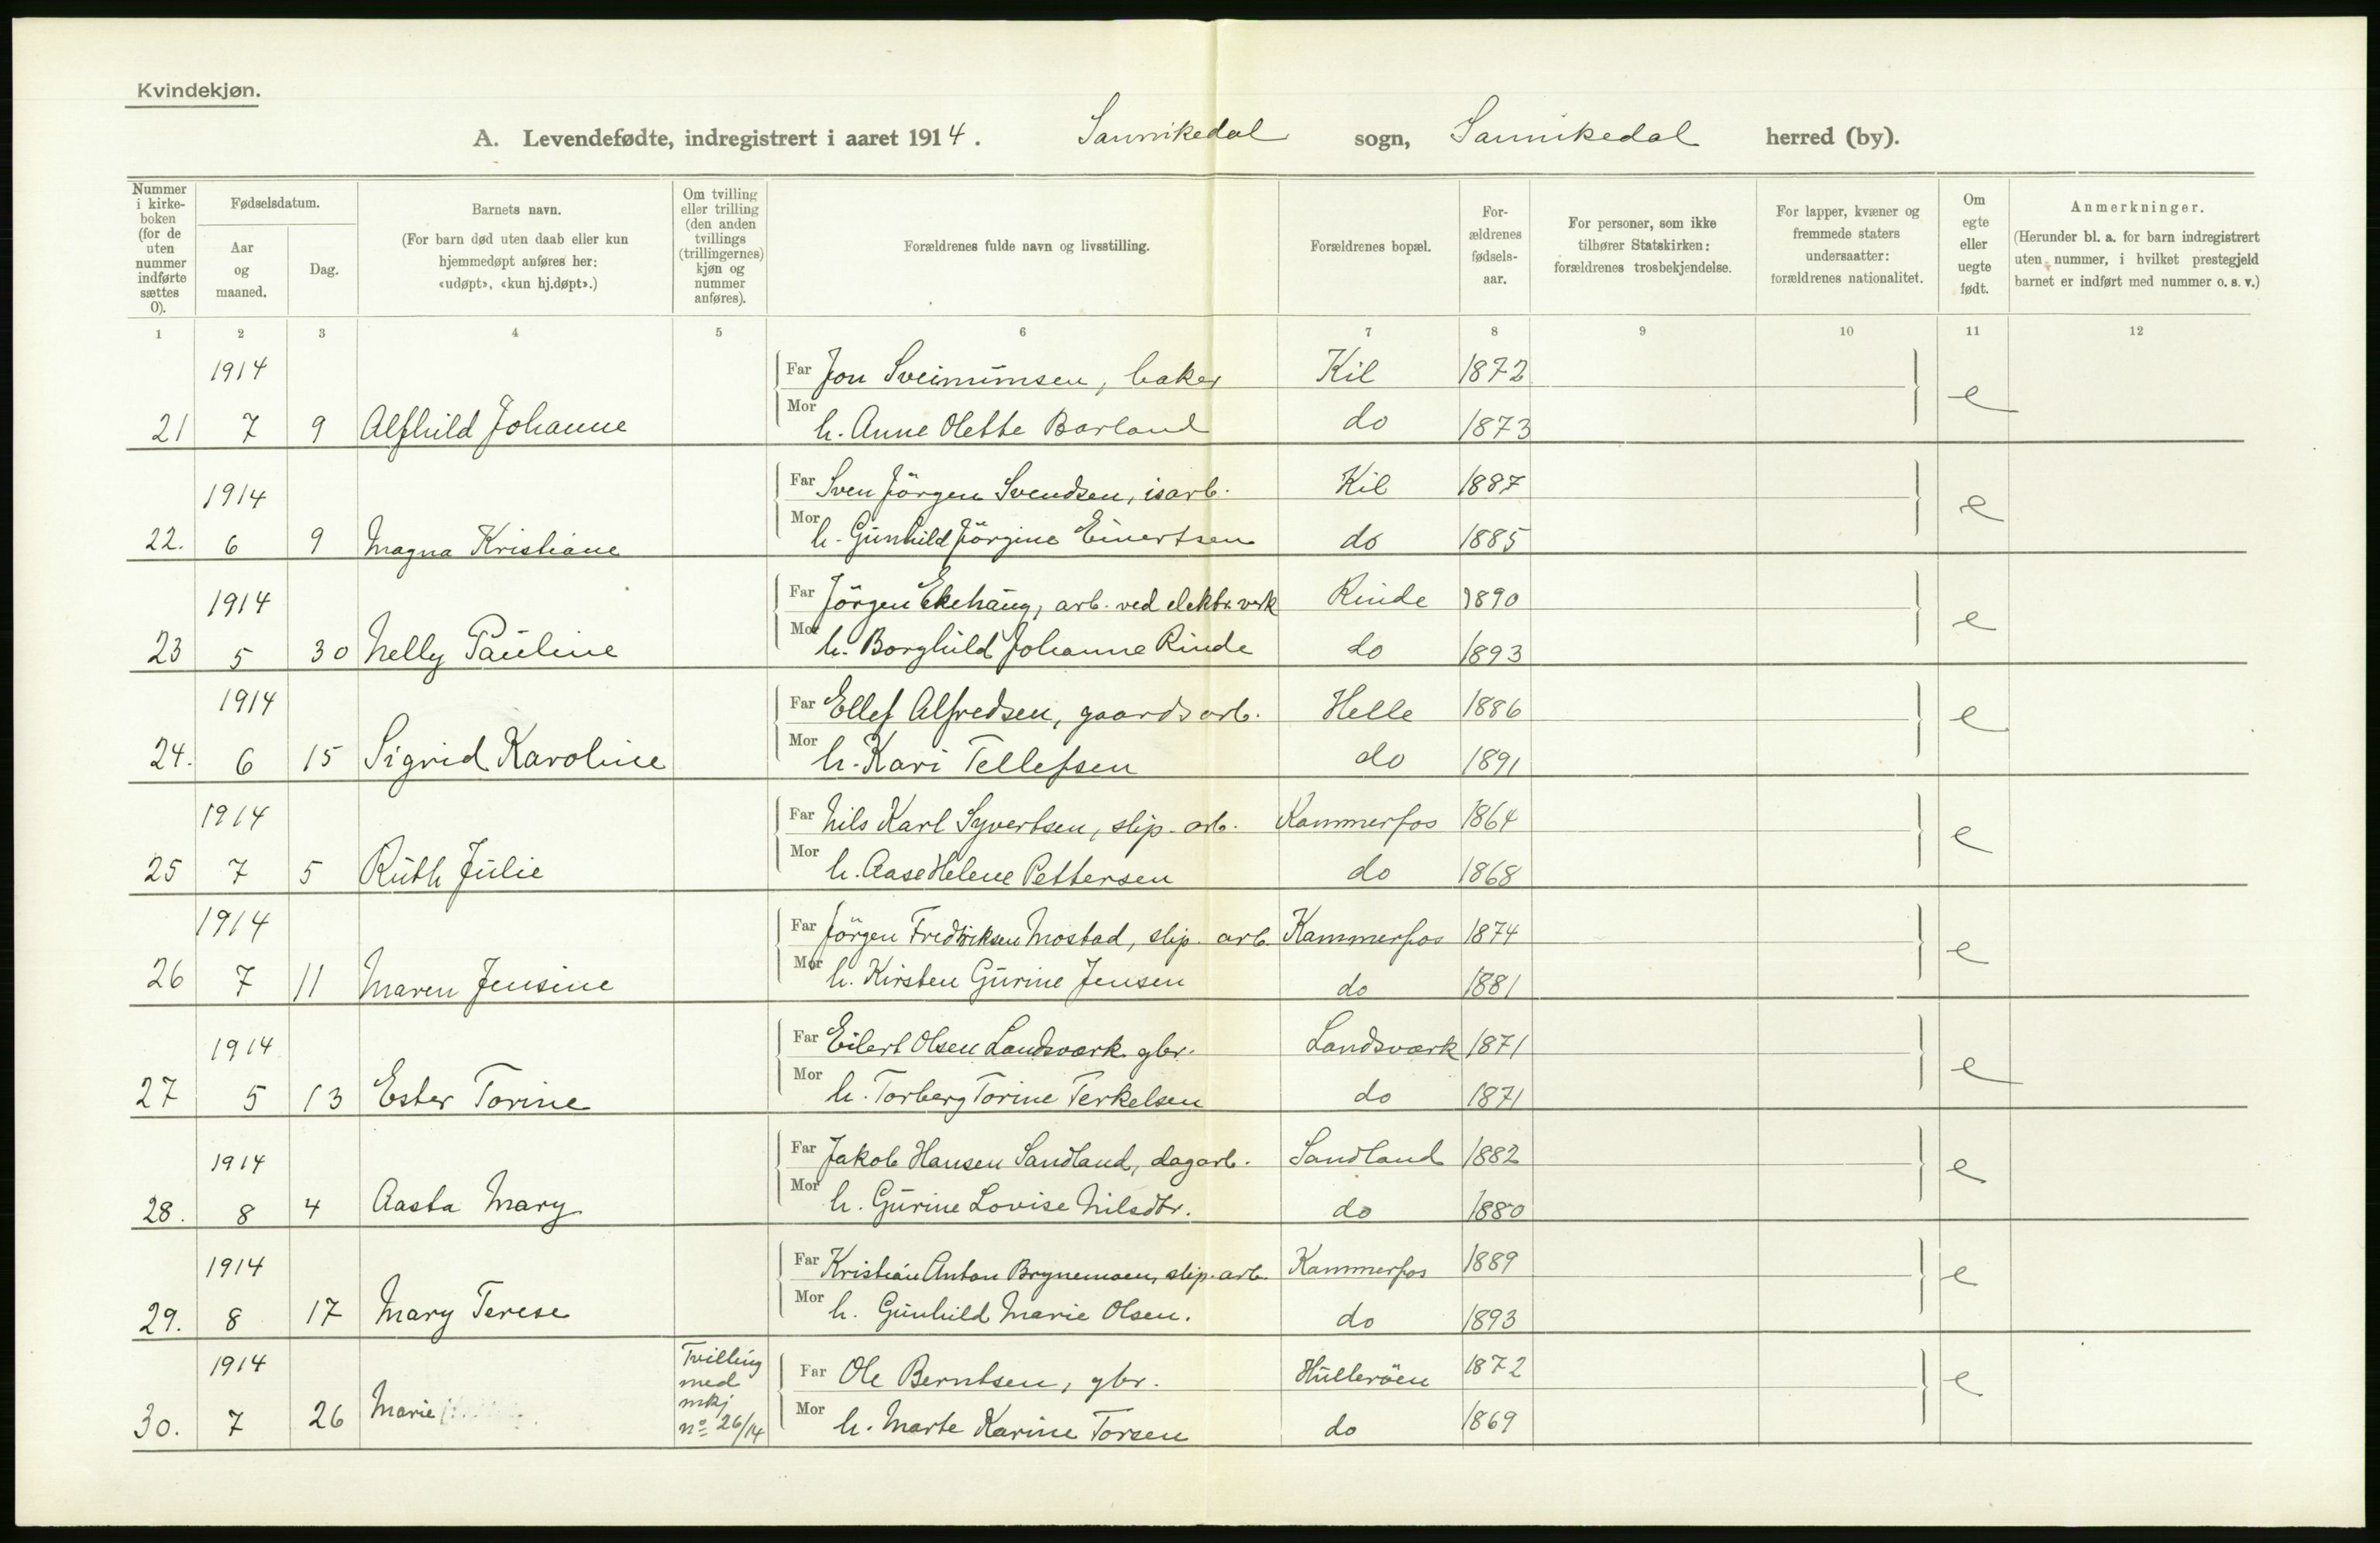 Kvindekjøn.
A. Levendefødte, indregistrert i aaret 1914. Sannikedal sogn, Sannikedal herred (by).
Nummer i kirke-boken (for de uten nummer indførte sættes 0).
Fødselsdatum.
Aar og maaned.
Dag.
Barnets navn.
(For barn død uten daab eller kun hjemmedøpt anføres her: «udøpt», «kun hj.døpt».)
Om tvilling eller trilling (den anden tvillings (trillingernes) kjøn og nummer anføres).
Forældrenes fulde navn og livsstilling.
Forældrenes bopæl.
For-ældrenes fødsels-aar.
For personer, som ikke tilhører Statskirken: forældrenes trosbekjendelse.
For lapper, kvæner og fremmede staters undersaatter: forældrenes nationalitet.
Om egte eller uegte født.
Anmerkninger.
(Herunder bl. a. for barn indregistrert uten nummer, i hvilket prestegjeld barnet er indført med nummer o. s. v.)
1 2 3 4 5 6 7 8 9 10 11 12
1914 Far Jon Sveinunsen, baker Kil 1872 e
21 7 9 Alfhild Johanne Mor h. Anne Olette Barland do 1873
1914 Far Sven Jörgen Svendsen, isarb. Kil 1887 e
22. 6 9 Magna Kristiane Mor h. Gunhild Jörgine Einertsen do 1885
1914 Far Jörgen Ekehaug, arb. ved elektr. verk Rinde 1890 e
23 5 30 Nelly Pauline Mor h. Borghild Johanne Rinde do 1893
1914 Far Ellef Alfredsen, gaardsarb. Helle 1886 e
24. 6 15 Sigrid Karoline Mor h. Kari Tellefsen do 1891
1914 Far Nils Karl Syvertsen, slip. arb. Kammerfos 1864 e
25 7 5 Ruth Julie Mor h. Aase Helene Pettersen do 1868
1914 Far Jörgen Fredriksen Mostad, slip. arb. Kammerfos 1874 e
26 7 11 Maren Jensine Mor h. Kirsten Gurine Jensen do 1881
1914 Far Eilert Olsen Landsværk gbr. Landsværk 1871 e
27 5 13 Ester Torine Mor h. Torberg Torine Terkelsen do 1871
1914 Far Jakob Hansen Sandland, dagarb. Sandland 1882 e
28. 8 4 Aasta Mary Mor h. Gurine Lovise Nilsdtr. do 1880
1914 Far Kristian Anton Brynemoen, slip. arb. Kammerfos 1889 e
29. 8 17 Mary Terese Mor h. Gunhild Marie Olsen. do 1893
1914 Tvilling med mkj nº 26/14 Far Ole Berntsen, gbr. Hulleröen 1872 e
30. 7 26 Marie Mor h. Marte Karine Torsen do 1869